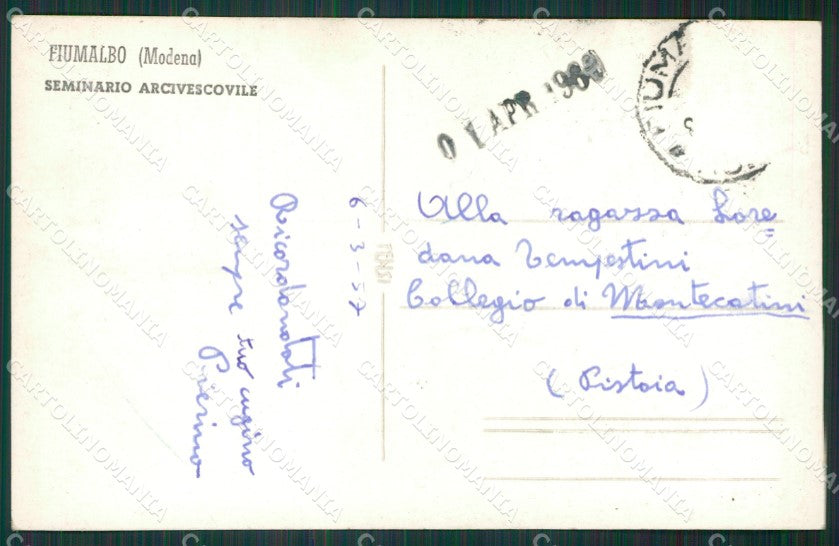 FIUMALBO (Modena)
SEMINARIO ARCIVESCOVILE
0 1 APR 196
FIUMA
6-3-57
Ricordandoti
sempre tuo cugino
Pierino
TENSI
Alla ragazza Lore=
dana Tempestini
Collegio di Montecatini
(Pistoia)
CARTOLINOMANIA